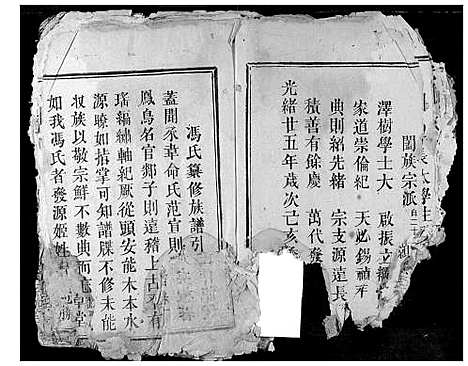 大學生
闔族宗派自二十
澤樹學士大 啟振立
家道崇倫紀 天必錫禎
典則紹先緒 宗支源遠長
積善有餘慶 萬代發
光緒廿五年歲次己亥
馮氏纂修族譜引
蓋聞豕韋俞氏范官則
鳳鳥名官郯子則遠稽上古乃有
瑤編繡軸紀厥從頭安能木本水
源瞭如指掌可知譜牒不修未能
收族以敬宗鮮不數典而忘
如我馮氏者發源姬姓